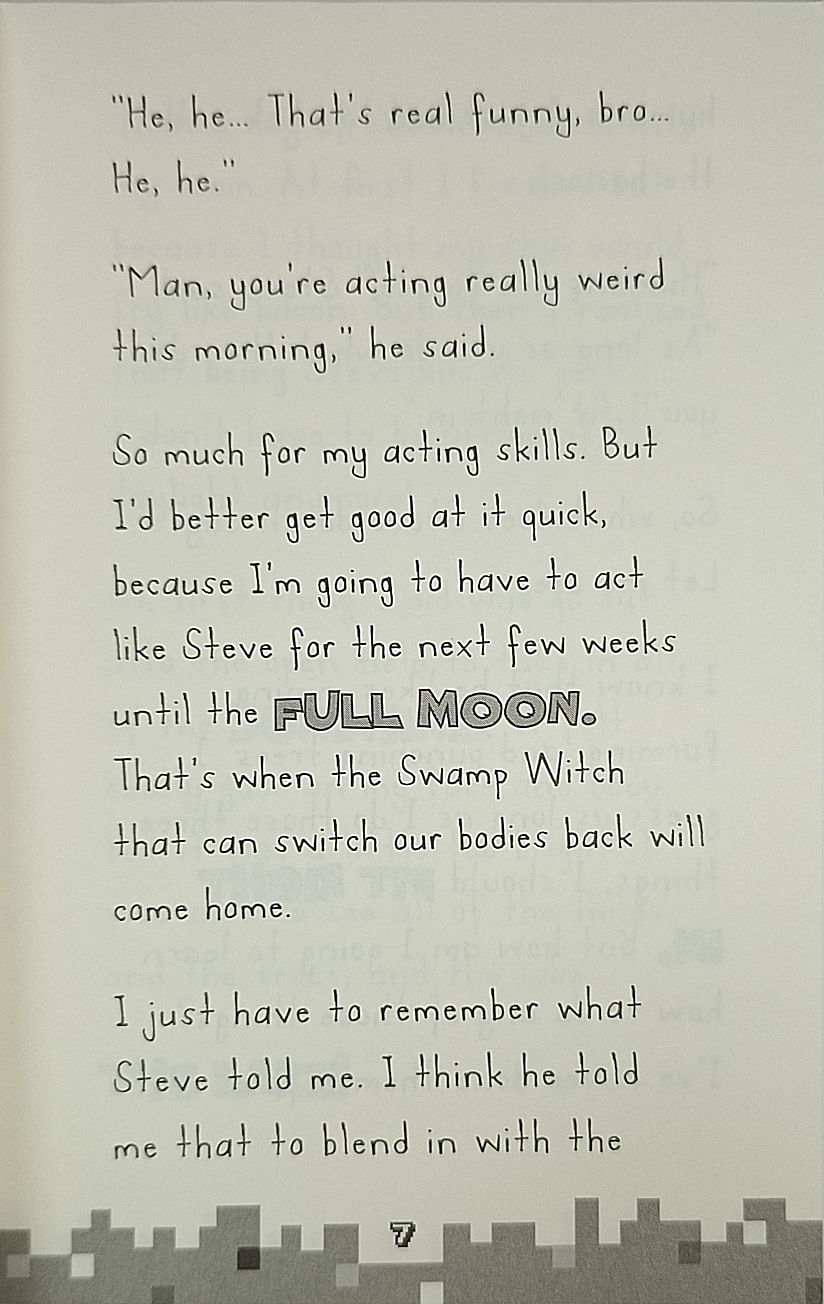 "He, he... That's real funny, bro...
He, he."
"Man, you're acting really weird
this morning," he said.
So much for my acting skills. But
I'd better get good at it quick,
because I'm going to have to act
like Steve for the next few weeks
until the FULL MOON.
That's when the Swamp Witch
that can switch our bodies back will
come home.
I just have to remember what
Steve told me. I think he told
me that to blend in with the
7